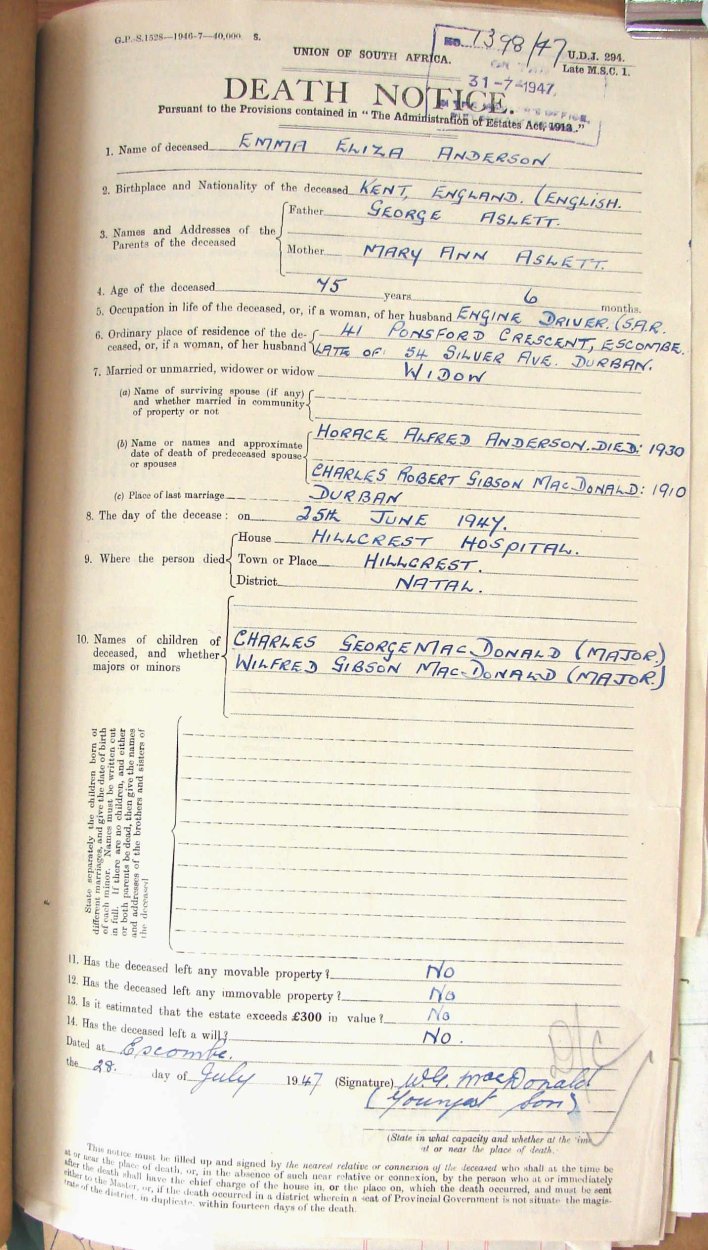 G.P.-S.1528—1946-7—40,000. S.
UNION OF SOUTH AFRICA.
No. 7398/47
U.D.J. 294.
Late M.S.C. 1.
31-7-1947
DEATH NOTICE.
Pursuant to the Provisions contained in "The Administration of Estates Act, 1913."
1. Name of deceased EMMA ELIZA ANDERSON
2. Birthplace and Nationality of the deceased KENT, ENGLAND. (ENGLISH.
3. Names and Addresses of the Parents of the deceased
Father GEORGE ASLETT.
Mother MARY ANN ASLETT.
4. Age of the deceased 75 years 6 months.
5. Occupation in life of the deceased, or, if a woman, of her husband ENGINE DRIVER. (S.A.R.
6. Ordinary place of residence of the de- 41 PONSFORD CRESCENT, ESCOMBE.
ceased, or, if a woman, of her husband LATE OF: 54 SILVER AVE. DURBAN.
7. Married or unmarried, widower or widow WIDOW
(a) Name of surviving spouse (if any)
and whether married in community
of property or not
(b) Name or names and approximate
date of death of predeceased spouse
or spouses
HORACE ALFRED ANDERSON. DIED: 1930
CHARLES ROBERT GIBSON MAC DONALD: 1910
(c) Place of last marriage DURBAN
8. The day of the decease: on 25th JUNE 1947.
9. Where the person died
House HILLCREST HOSPITAL.
Town or Place HILLCREST.
District NATAL.
10. Names of children of
deceased, and whether
majors or minors
CHARLES GEORGE MAC DONALD (MAJOR.)
WILFRED GIBSON MAC DONALD (MAJOR.)
State separately the children born of
different marriages, and give the date of birth
of each minor. Names must be written out
in full. If there are no children, and either
or both parents be dead, then give the names
and addresses of the brothers and sisters of
the deceased
11. Has the deceased left any movable property? NO
12. Has the deceased left any immovable property? NO
13. Is it estimated that the estate exceeds £300 in value? NO
14. Has the deceased left a will? NO.
Dated at Escombe.
the 28. day of July 1947 (Signature) W.G. MacDonald
(Youngest Son)
(State in what capacity and whether at the time
at or near the place of death.
This notice must be filled up and signed by the nearest relative or connexion of the deceased who shall at the time be
at or near the place of death, or, in the absence of such near relative or connexion, by the person who at or immediately
after the death shall have the chief charge of the house in, or the place on, which the death occurred, and must be sent
either to the Master, or, if the death occurred in a district wherein a seat of Provincial Government is not situate the magis-
trate of the district, in duplicate, within fourteen days of the death.